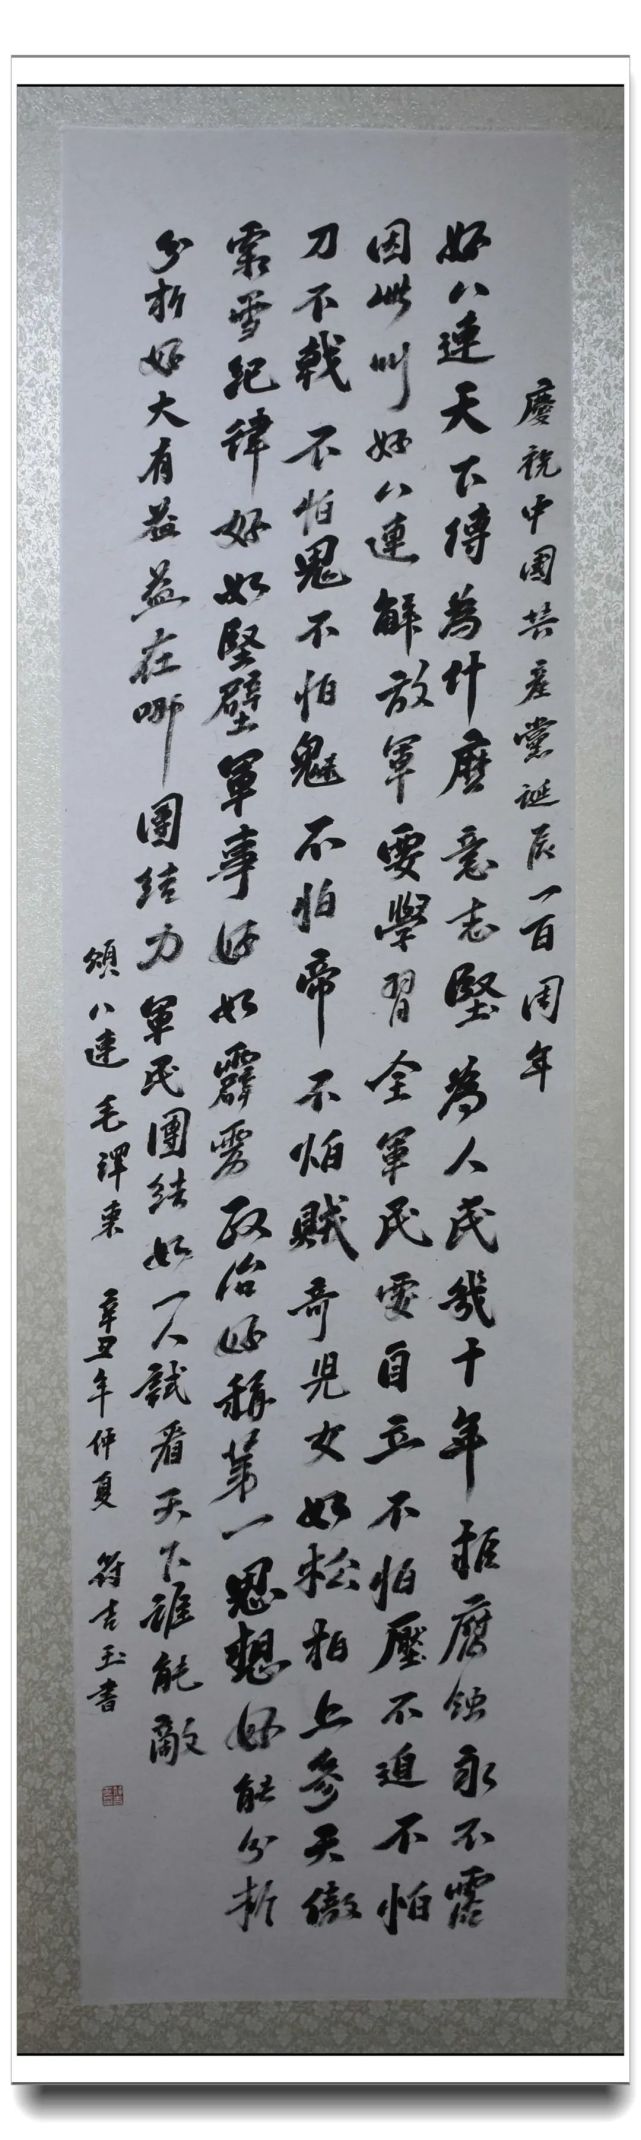 慶祝中國共產黨誕辰一百周年
好八連天下傳為什麼意志堅為人民幾十年拒腐蝕永不霑
因此叫好八連解放軍要學習全軍民要自立不怕壓不迫不怕
刀不戟不怕鬼不怕魅不怕帝不怕賊奇兒女如松柏上參天傲
霜雪紀律好如堅壁軍事好如霹靂政治好稱第一思想好能分析
分析好大有益益在哪團結力軍民團結如一人試看天下誰能敵
頌八連毛澤東 辛丑年仲夏 符吉玉書